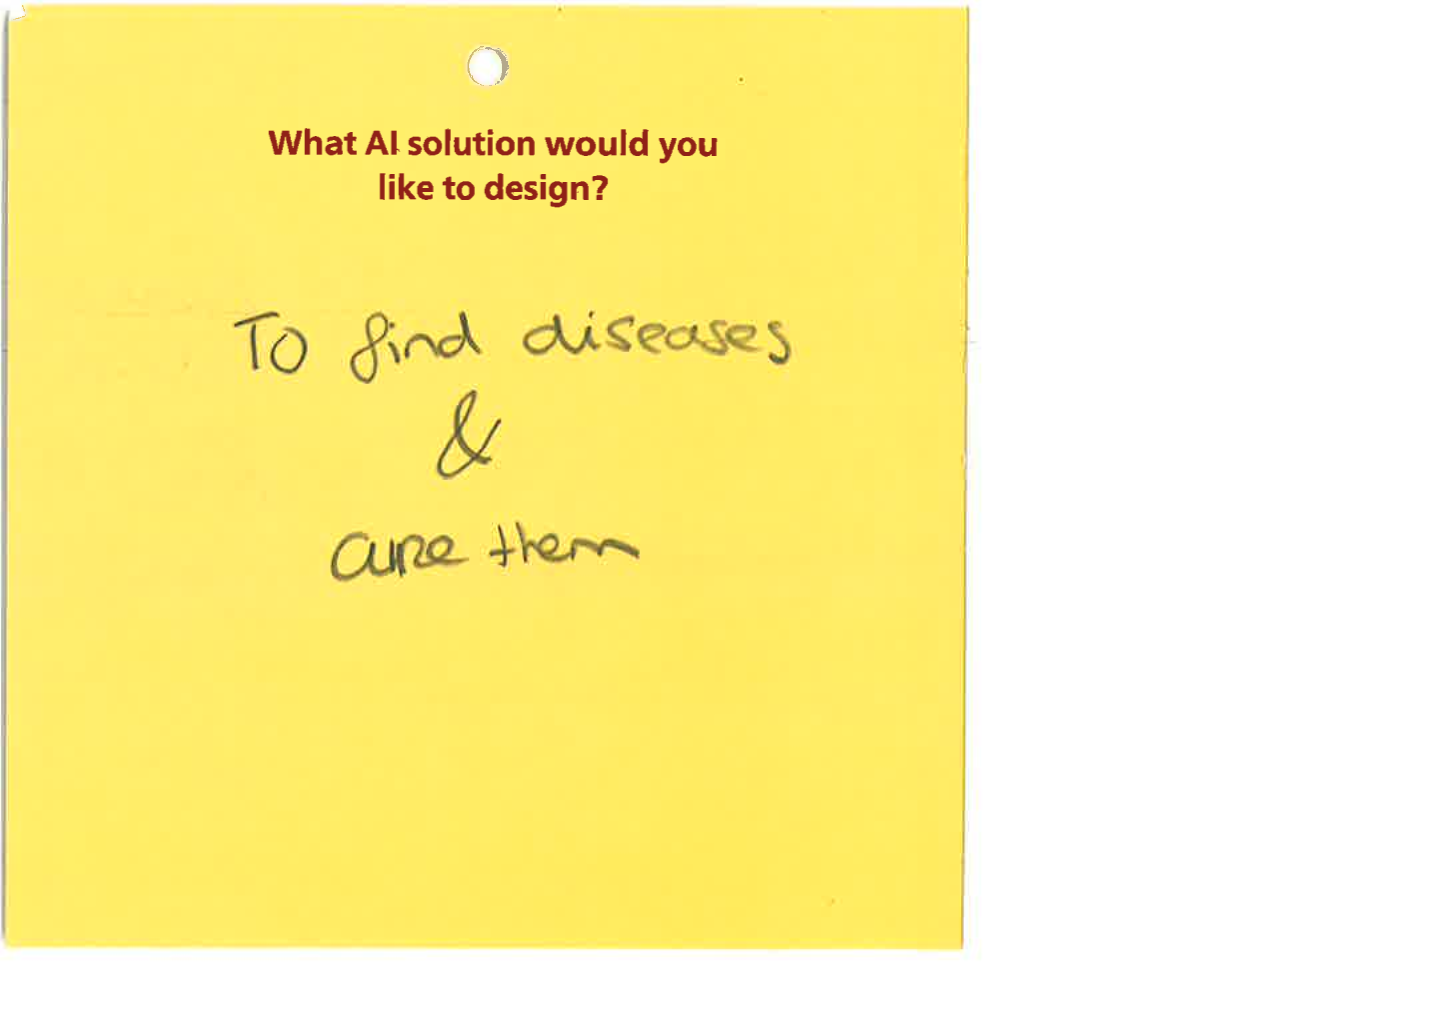 What AI solution would you
like to design?
To find diseases
&
cure them